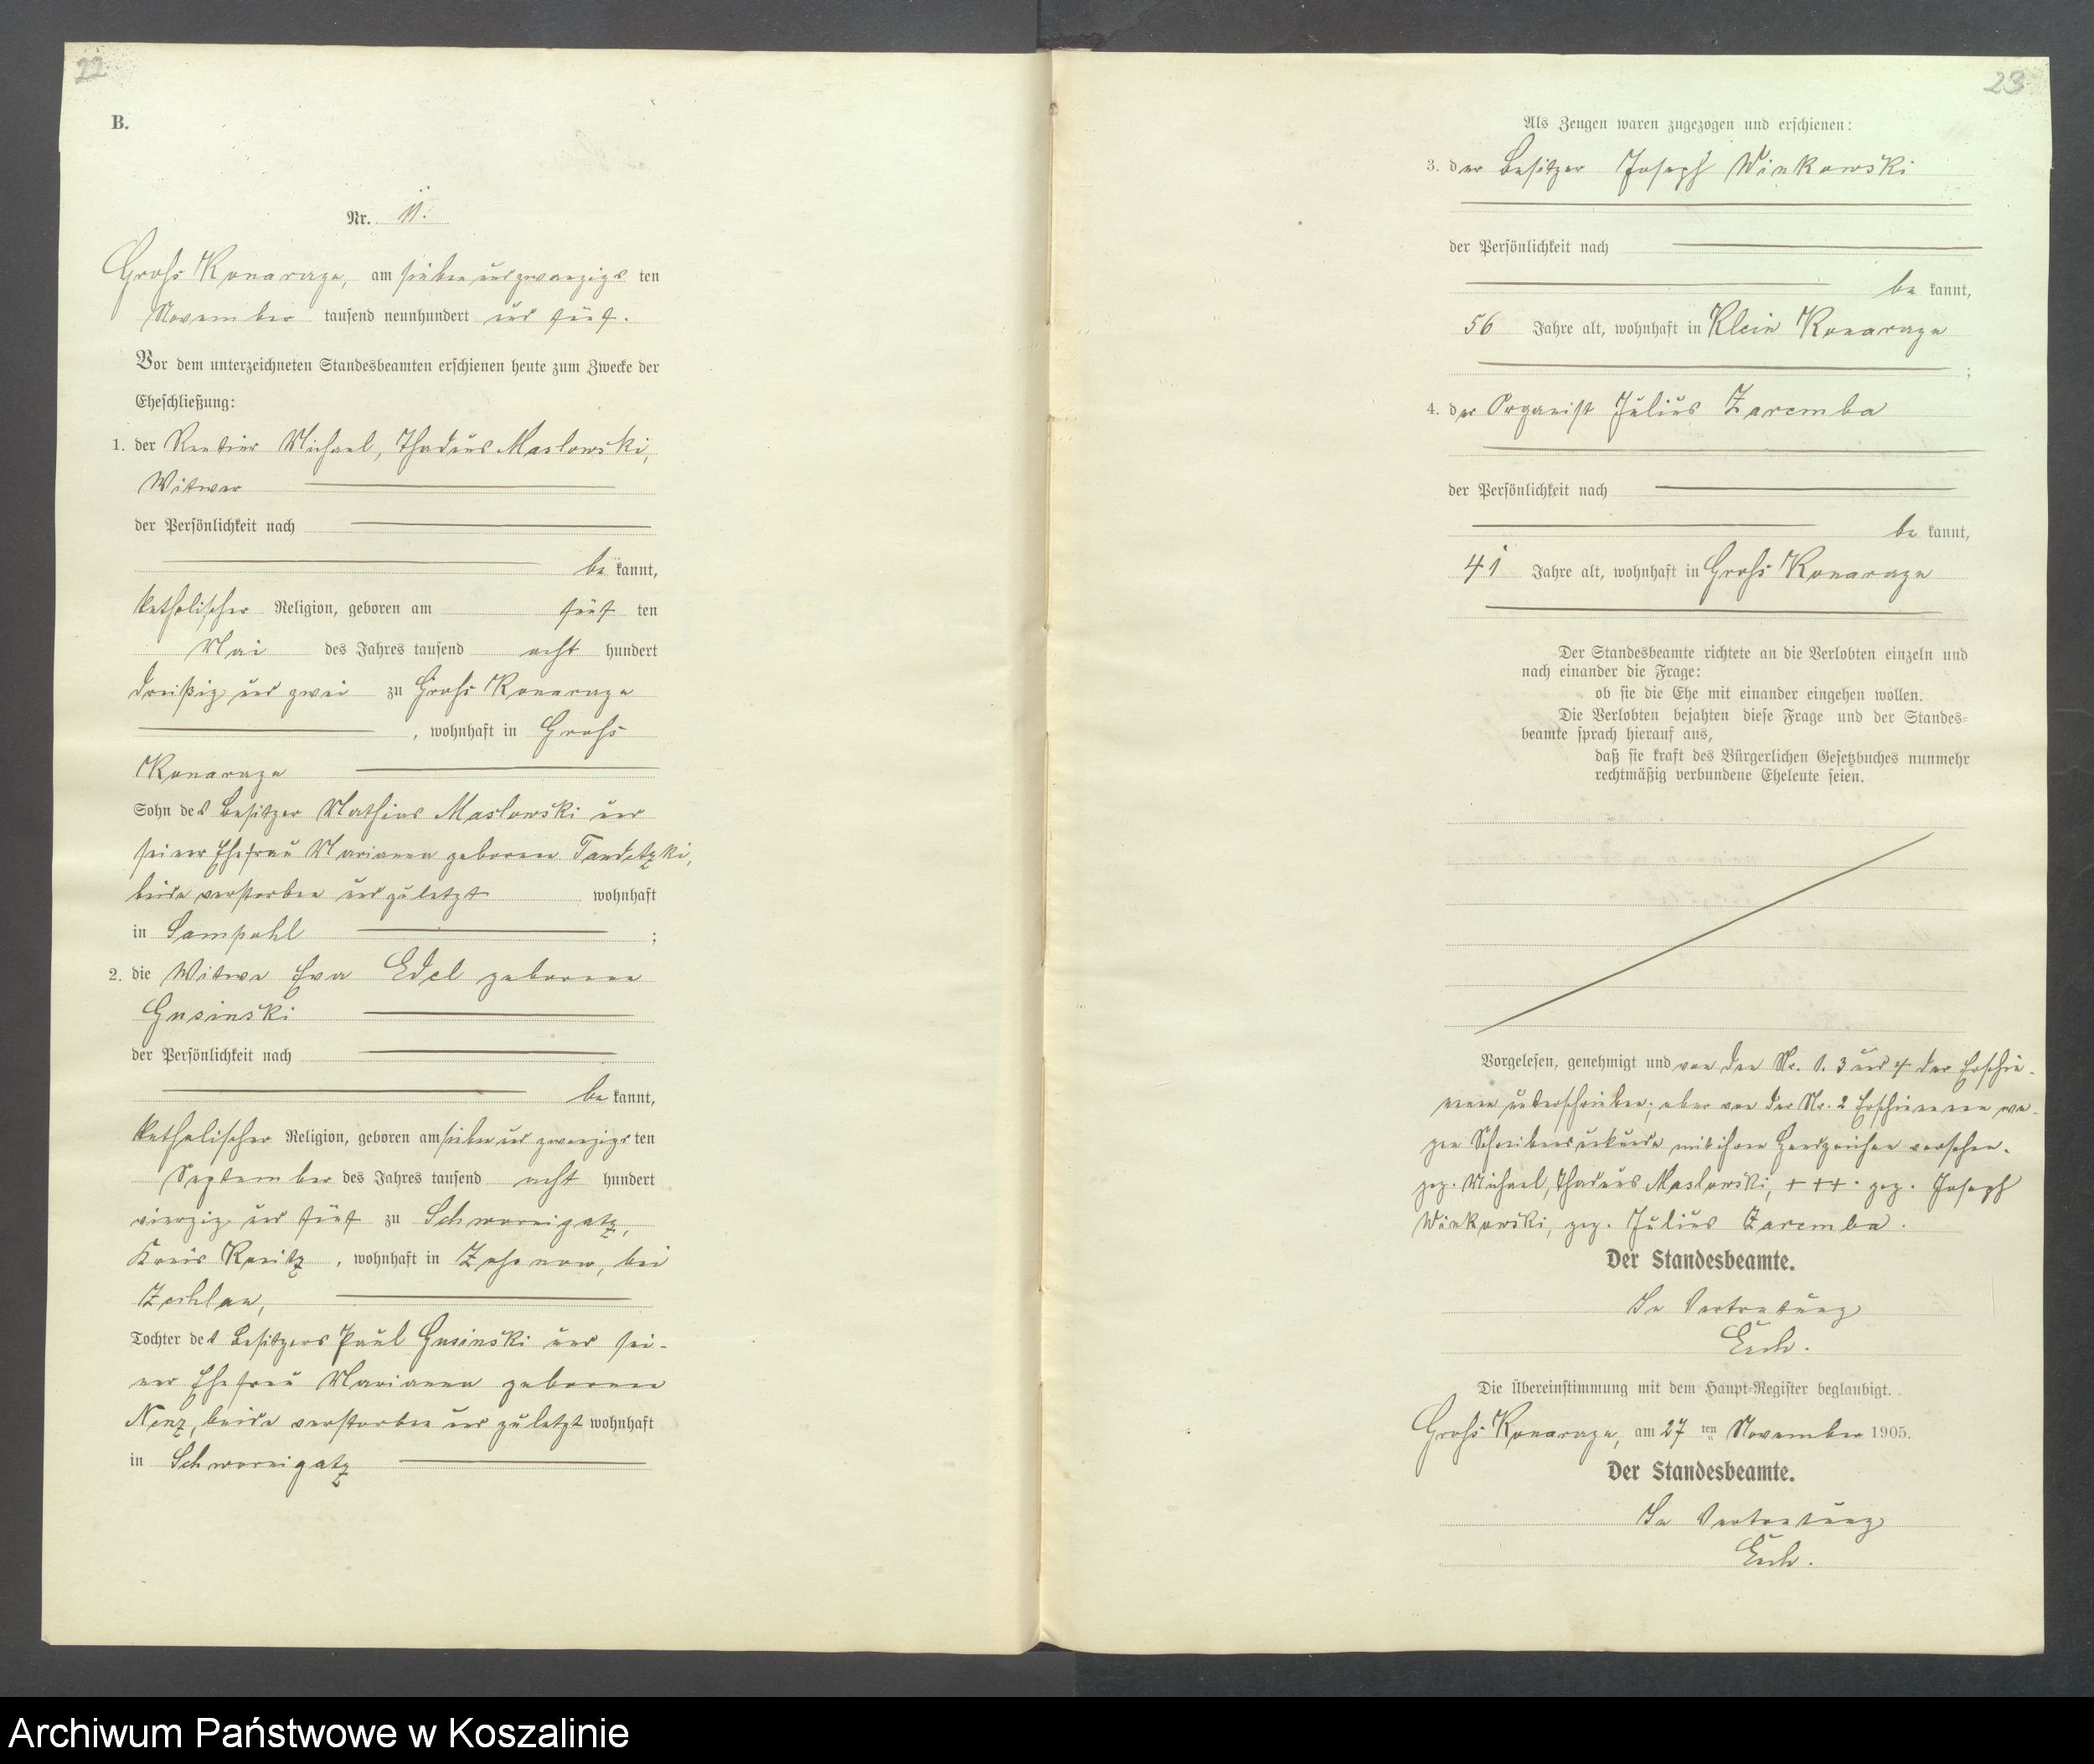 22
B.
Nr. 11.
Groß Konarczyn, am sieben und zwanzigs ten
November tausend neunhundert und fünf.
Vor dem unterzeichneten Standesbeamten erschienen heute zum Zwecke der
Eheschließung:
1. der Rentier Michael, Thadeus Maslowski,
Witwer
der Persönlichkeit nach
be kannt,
katholischer Religion, geboren am fünf ten
Mai des Jahres tausend acht hundert
dreißig und zwei zu Groß
, wohnhaft in Groß
Sohn des Besitzer Mathias Maslowski und
seiner Ehefrau Marianna geborene Tandetzki,
beide verstorben und zuletzt wohnhaft
in Sampohl ;
2. die Witwe Eva Edel geborene
Gusinski
der Persönlichkeit nach
be kannt,
katholischer Religion, geboren am sieben und zwanzigs ten
September des Jahres tausend acht hundert
vierzig und fünf zu Schwornigatz,
Kreis Konitz, wohnhaft in bei
Zechlau,
Tochter des Besitzers Paul Gusinski und sei-
ner Ehefrau Marianna geborene
Nenz, beide verstorben und zuletzt wohnhaft
in Schwornigatz
23
Als Zeugen waren zugezogen und erschienen:
3. der Besitzer Joseph Winkowski
der Persönlichkeit nach
be kannt,
56 Jahre alt, wohnhaft in Klein
;
4. der Organist Julius Zaremba
der Persönlichkeit nach
be kannt,
41 Jahre alt, wohnhaft in Groß
Der Standesbeamte richtete an die Verlobten einzeln und
nach einander die Frage:
ob sie die Ehe mit einander eingehen wollen.
Die Verlobten bejahten diese Frage und der Standes-
beamte sprach hierauf aus,
daß sie kraft des Bürgerlichen Gesetzbuches nunmehr
rechtmäßig verbundene Eheleute seien.
Vorgelesen, genehmigt und von den Nr. 1. 3 und 4 der Erschie-
nenen unterschrieben; aber von der Nr. 2 Erschienenen we-
gen Schreibensunkunde mit ihrem Handzeichen versehen.
gez. Michael, Thadeus Maslowski, +++. gez. Joseph
Winkowski, gez. Julius Zaremba.
Der Standesbeamte.
In Vertretung
Die Übereinstimmung mit dem Haupt-Register beglaubigt.
Groß am 27 ten November 1905.
Der Standesbeamte.
In Vertretung
Archiwum Państwowe w Koszalinie